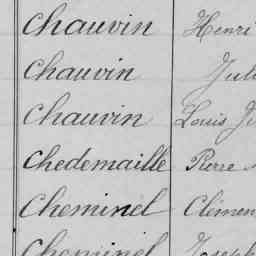 Chauvin Henri
Chauvin
Chauvin Louis
Chedemaille Pierre
Cheminel
Cheminel Joseph